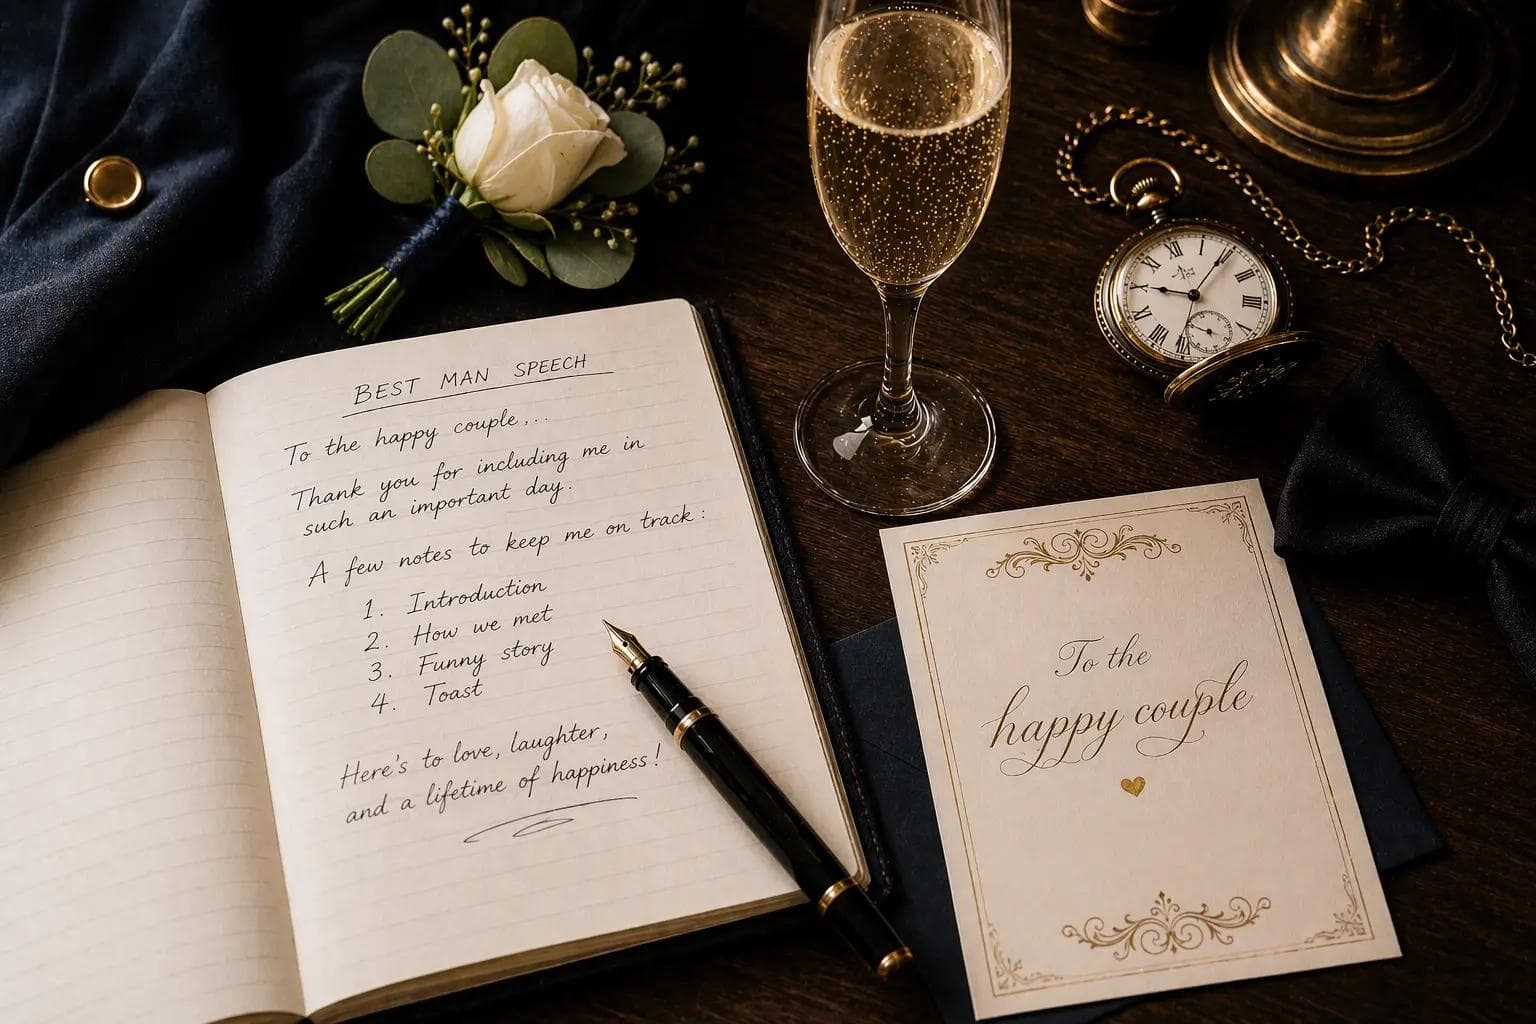 BEST MAN SPEECH
To the happy couple...
Thank you for including me in
such an important day.
A few notes to keep me on track:
1. Introduction
2. How we met
3. Funny story
4. Toast
Here's to love, laughter,
and a lifetime of happiness!
To the
happy couple